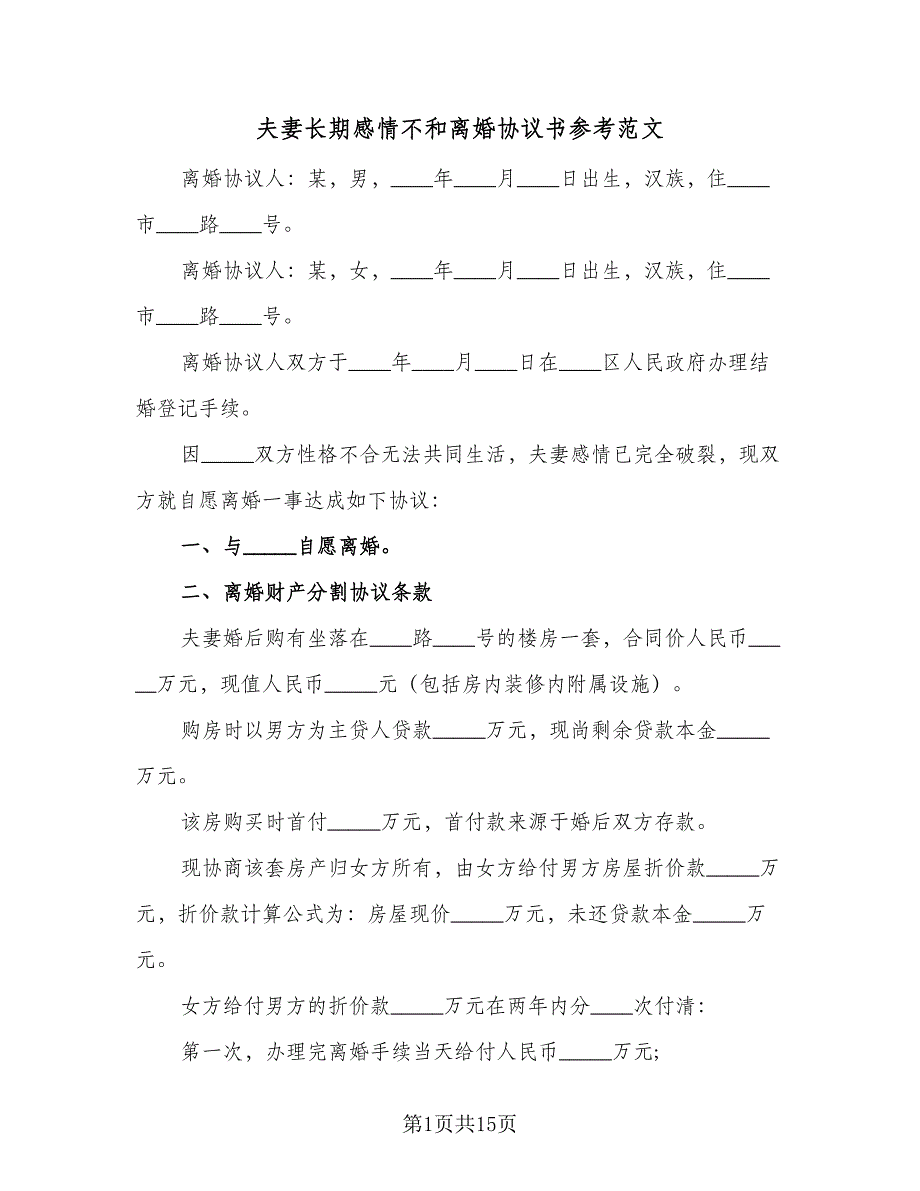 夫妻长期感情不和离婚协议书参考范文
离婚协议人：某，男，____年____月____日出生，汉族，住____
市____路____号。
离婚协议人：某，女，____年____月____日出生，汉族，住____
市____路____号。
离婚协议人双方于____年____月____日在____区人民政府办理结
婚登记手续。
因_____双方性格不合无法共同生活，夫妻感情已完全破裂，现双
方就自愿离婚一事达成如下协议：
一、与_____自愿离婚。
二、离婚财产分割协议条款
夫妻婚后购有坐落在____路____号的楼房一套，合同价人民币___
__万元，现值人民币_____元（包括房内装修内附属设施）。
购房时以男方为主贷人贷款_____万元，现尚剩余贷款本金_____
万元。
该房购买时首付_____万元，首付款来源于婚后双方存款。
现协商该套房产归女方所有，由女方给付男方房屋折价款_____万
元，折价款计算公式为：房屋现价_____万元，未还贷款本金_____万
元。
女方给付男方的折价款_____万元在两年内分____次付清：
第一次，办理完离婚手续当天给付人民币_____万元;
第1页共15页